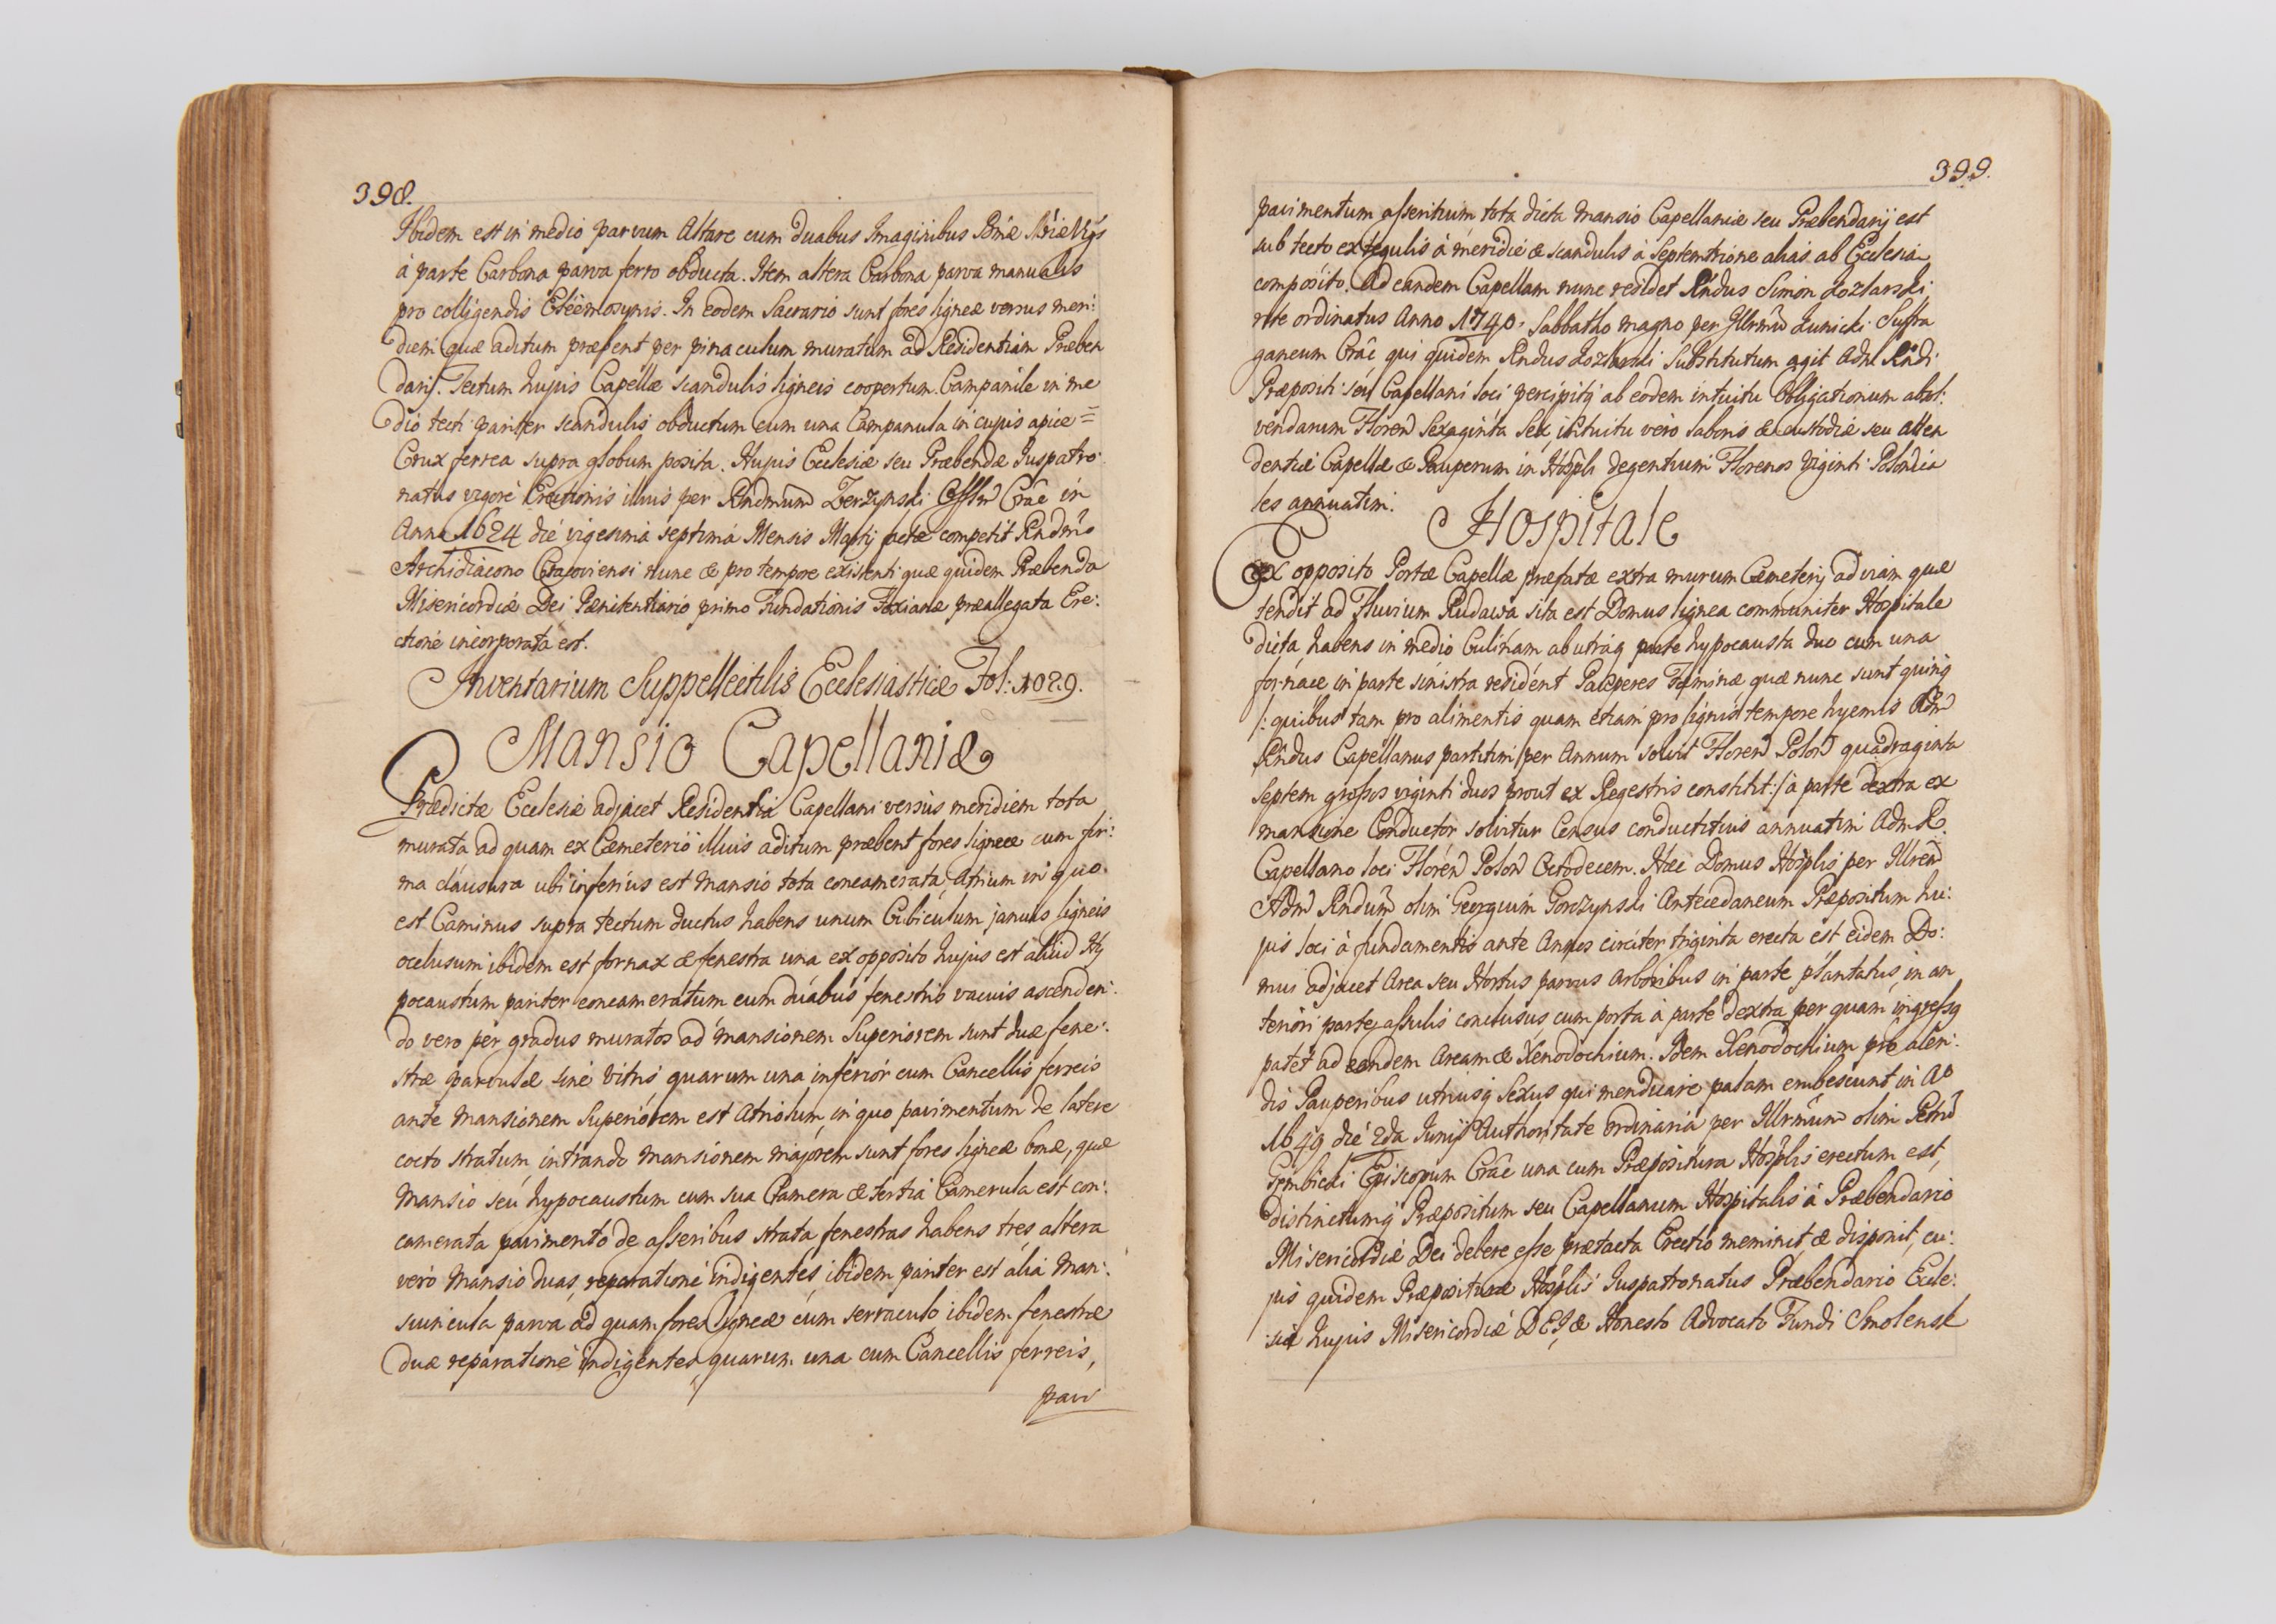 398.
Ibidem est in medio parvum Altare cum duabus Imaginibus Bmæ Mriæ Vgs
à parte Carbona parva ferro obducta. Item altera Carbona parva manualis
pro colligendis Eleemosynis. In eodem Sacrario sunt fores ligneæ versus meri:
diem quæ aditum præbent per pinaculum muratum ad Residentiam Præben
darij. Tectum hujus Capellæ scandulis ligneis coopertum. Campanile in me
dio tecti pariter scandulis obductum cum una Campanula in cujus apice =
Crux ferrea supra globum posita. Hujus Ecclesiæ seu Præbendæ Juspatro
natus vigore Erectionis illius per Rndmum Zerzynski Offlm Crac̃ in
Anno 1624 die vigesima septima Mensis Martij factæ competit Rndmo
Archidiacono Cracoviensi nunc & pro tempore existenti quæ quidem Præbenda
Misericordiæ Dei Pænitentiario primo Fundationis Foxianæ præallegata Ere:
ctione incorporata est.
Inventarium Suppellectilis Ecclesiasticæ Fol: 1029.
Mansio Capellaniæ
Prædictæ Ecclesiæ adjacet Residentia Capellani versùs meridiem tota
murata ad quam ex Cæmeterio illius aditum præbent fores ligneæ cum fir:
ma clausura ubi inferius est mansio tota concamerata, Atrium in quo
est Caminus supra tectum ductus habens unum Cubiculum januis ligneis
occlusum ibidem est fornax & fenestra una ex opposito hujus est aliud Hy
pocaustum pariter concameratum cum duabus fenestris vacuis ascenden:
do vero per gradus muratos ad mansionem Superiorem sunt duæ fene:
stræ parvulæ sine vitris quarum una inferior cum Cancellis ferreis
ante mansionem Superiorem est Atriolum, in quo pavimentum de latere
cocto stratum intrando mansionem majorem sunt fores ligneæ bonæ, quæ
mansio seu hypocaustum cum sua Camera & tertia Camerula est con:
camerata pavimento de asseribus strata fenestras habens tres altera
verò mansio duas, reparatione indigentes, ibidem pariter est alia Man:
siuncula parva ad quam fores ligneæ cum serraculo ibidem fenestræ
duæ reparatione indigentes, quarum una cum Cancellis ferreis,
pavi
399.
pavimentum asseritium tota dicta mansio Capellaniæ seu Præbendarij est
sub tecto ex tegulis à meridie & scandulis à Septemtrione alias ab Ecclesia
composito. Ad eandem Capellam nunc residet Rndus Simon Kozlarski
rite ordinatus Anno 1740. Sabbatho magno per Illrmũ Kunicki Suffra
ganeum Crac̃ qui quidem Rndus Kozlarski Substitutum agit Adm Rndi
Præpositi seu Capellani loci percipitq ab eodem intuitu Obligationum absol:
vendarum Floren Sexaginta Sex, intuitu verò laboris & custodiæ seu atten
dentiæ Capellæ & Pauperum in Hospli degentium Florenos Viginti Polonica
les annuatim.
Hospitale
Ex opposito Portæ Capellæ præfatæ extra murum Cæmeterij ad viam quæ
tendit ad Fluvium Rudawa sita est Domus lignea communiter Hospitale
dicta, habens in medio Culinam ab utraq parte hypocausta duo cum una
fornace in parte sinistra resident Pauperes Fæminæ quæ nunc sunt quinq
/: quibus tam pro alimentis quam etiam pro lignis tempore hyemis Adm
Rndus Capellanus partitim per Annum solvit Floren Polon quadraginta
septem grossos viginti duos prout ex Regestris constitit :/ à parte dextra ex
mansione Conductor solvitur Census conductitius annuatim Adm R
Capellano loci Floren Polon Octodecem. Hæc Domus Hosplis per Illrem
Adm Rndum olim Georgium Gorczynski Antecedaneum Præpositum hu:
jus loci à fundamentis ante Annos circiter triginta erecta est eidem Do:
mui adjacet Area seu Hortus parvus arboribus in parte plantatus, in an
teriori parte, assulis conclusus cum porta à parte dextra per quam ingressq
patet ad eandem Aream & Xenodochium. Idem Xenodochium pro alen:
dis Pauperibus utriusq Sexus qui mendicare palam erubescunt in Aº
1649 die 2da Junij Authoritate Ordinaria per Illrmum olim Petrũ
Gembicki Episcopum Crac̃ una cum Præpositura Hosplis erectum est,
distinctumq Præpositum seu Capellanum Hospitalis à Præbendario
Misericordiæ Dei debere esse prætacta Erectio meminit, & disponit, cu:
jus quidem Præposituræ Hosplis Juspatronatus Præbendario Eccle:
siæ hujus Misericordiæ DEI, & Honesto Advocato Fundi Smolensk